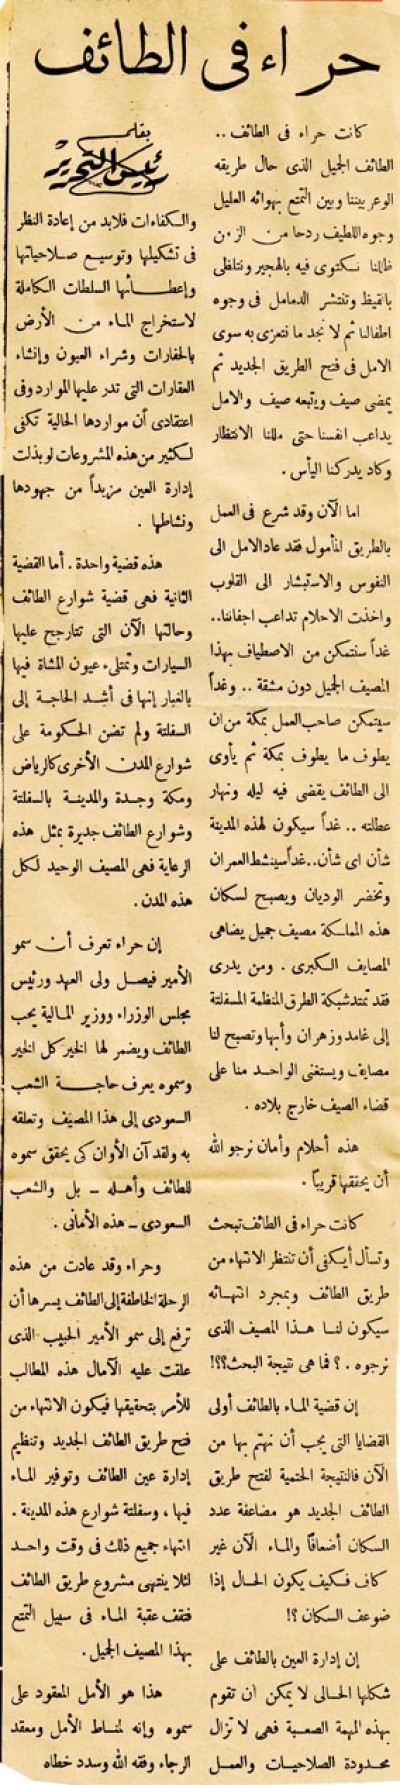 حراء فى الطائف
كانت حراء فى الطائف ..
الطائف الجميل الذى حال طريقه
الوعر بيننا وبين التمتع بهوائه العليل
وجوه اللطيف ردحا من الزمن
ظللنا نكتوى فيه بالهجير ونتلظى
بالقيظ وتنتشر الدمامل فى وجوه
اطفالنا ثم لا نجد ما نتعزى به سوى
الامل فى فتح الطريق الجديد ثم
يمضى صيف ويتبعه صيف والامل
يداعب انفسنا حتى مللنا الانتظار
وكاد يدركنا اليأس .
اما الآن وقد شرع فى العمل
بالطريق المأمول فقد عاد الامل الى
النفوس والاستبشار الى القلوب
واخذت الاحلام تداعب اجفاننا ..
غداً سنتمكن من الاصطياف بهذا
المصيف الجميل دون مشقة .. وغداً
سيتمكن صاحب العمل بمكة من ان
يطوف ما يطوف بمكة ثم يأوى
الى الطائف يقضى فيه ليله ونهار
عطلته .. غداً سيكون لهذه المدينة
شأن اى شأن .. غداً سينشط العمران
وتخضر الوديان ويصبح لسكان
هذه المملكة مصيف جميل يضاهى
المصايف الكبرى . ومن يدرى
فقد تمتد شبكة الطرق المنظمة المسفلتة
إلى غامد وزهران وأبها وتصبح لنا
مصايف ويستغنى الواحد منا على
قضاء الصيف خارج بلاده .
هذه أحلام وأمان نرجو الله
أن يحققها قريباً .
كانت حراء فى الطائف تبحث
وتسأل أيكفى أن تنتظر الانتهاء من
طريق الطائف وبمجرد انتهائه
سيكون لنا هذا المصيف الذى
نرجوه . ؟ فما هى نتيجة البحث؟؟!
إن قضية الماء بالطائف أولى
القضايا التى يجب أن نهتم بها من
الآن فالنتيجة الحتمية لفتح طريق
الطائف الجديد هو مضاعفة عدد
السكان أضعافاً والماء الآن غير
كاف فكيف يكون الحال إذا
ضوعف السكان ؟!
إن إدارة العين بالطائف على
شكلها الحالى لا يمكن ان تقوم
بهذه المهمة الصعبة فهى لا تزال
محدودة الصلاحيات والعمل
بقلم
رئيس التحرير
والكفاءات فلابد من إعادة النظر
فى تشكيلها وتوسيع صلاحياتها
وإعطائها السلطات الكاملة
لاستخراج الماء من الأرض
بالحفارات وشراء العيون وإنشاء
العقارات التى تدر عليها الموارد وفى
اعتقادى أن مواردها الحالية تكفى
لكثير من هذه المشروعات لو بذلت
إدارة العين مزيداً من جهودها
ونشاطها .
هذه قضية واحدة . أما القضية
الثانية فهى قضية شوارع الطائف
وحالتها الآن التى تتارجح عليها
السيارات وتمتلىء عيون المشاة فيها
بالغبار إنها فى أشد الحاجة إلى
السفلتة ولم تضن الحكومة على
شوارع المدن الأخرى كالرياض
ومكة وجدة والمدينة بالسفلتة
وشوارع الطائف جديرة بمثل هذه
الرعاية فهى المصيف الوحيد لكل
هذه المدن .
إن حراء تعرف أن سمو
الأمير فيصل ولى العهد ورئيس
مجلس الوزراء ووزير المالية يحب
الطائف ويضمر لها الخير كل الخير
وسموه يعرف حاجة الشعب
السعودى إلى هذا المصيف وتعلقه
به ولقد آن الأوان كى يحقق سموه
للطائف وأهله – بل والشعب
السعودى – هذه الأمانى .
وحراء وقد عادت من هذه
الرحلة الخاطفة إلى الطائف يسرها أن
ترفع إلى سمو الأمير الحبيب الذى
علقت عليه الآمال هذه المطالب
للأمر بتحقيقها فيكون الانتهاء من
فتح طريق الطائف الجديد وتنظيم
إدارة عين الطائف وتوفير الماء
فيها ، وسفلتة شوارع هذه المدينة .
انتهاء جميع ذلك فى وقت واحد
لئلا ينتهى مشروع طريق الطائف
فتقف عقبة الماء فى سبيل التمتع
بهذا المصيف الجميل .
هذا هو الأمل المعقود على
سموه وإنه لمناط الأمل ومعقد
الرجاء وفقه الله وسدد خطاه